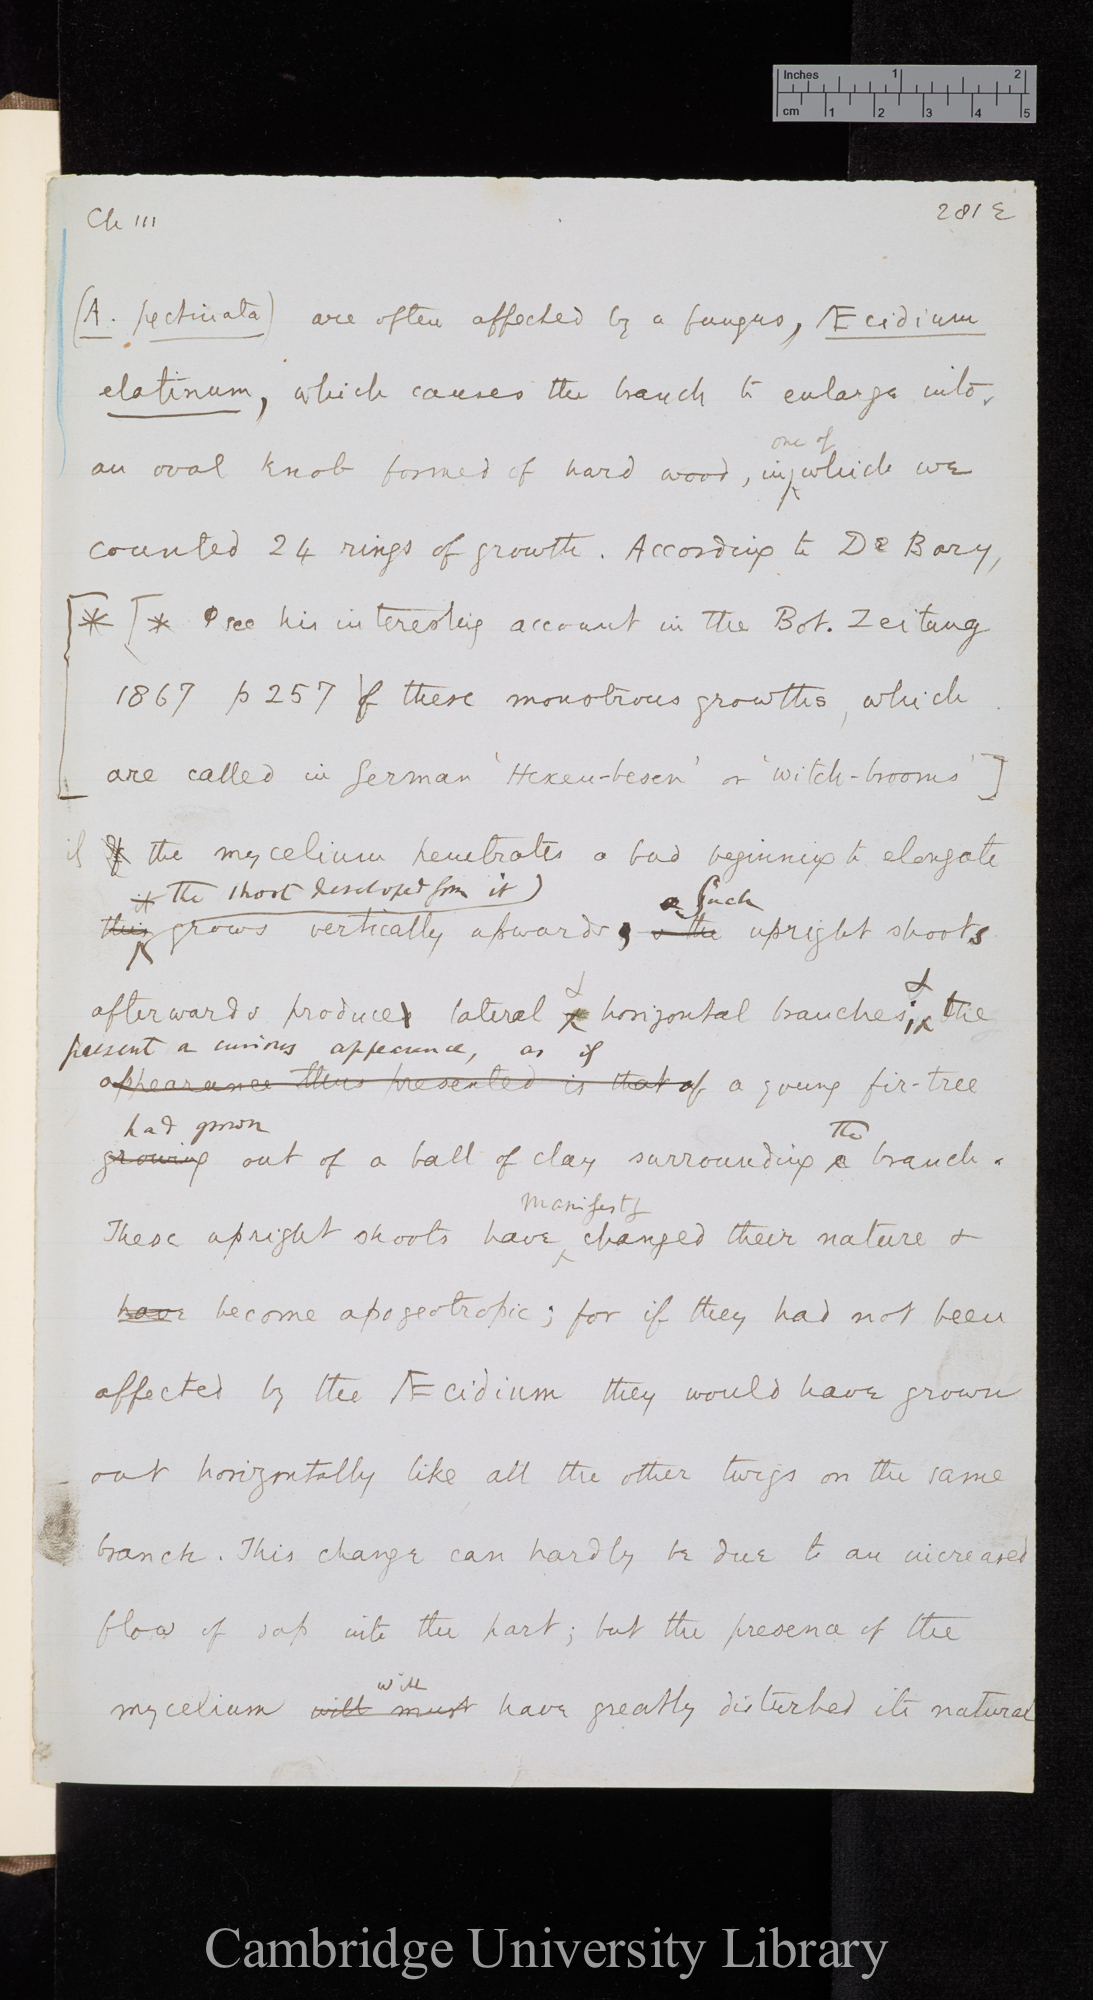 Inches 1 2
cm 1 2 3 4 5
Ch III 281 E
(A. pectinata) are often affected by a fungus, Æcidium
elatinum, which causes the branch to enlarge into
one of
an oval knob formed of hard wood, in which we
counted 24 rings of growth. According to De Bary,
[* [* see his interesting account in the Bot. Zeitung
1867 p 257 of these monstrous growths, which
are called in German 'Hexen-besen' or 'witch-brooms']
if If the mycelium penetrates a bud beginning to elongate
the shoot developed from it)
this grows vertically upwards, & the upright shoots
Such
afterwards produce lateral & horizontal branches; & the
present a curious appearance, as if
appearance thus presented is that of a young fir-tree
had grown
the
growing out of a ball of clay surrounding a branch.
manifestly
These upright shoots have changed their nature &
have become apogeotropic; for if they had not been
affected by the Æcidium they would have grown
out horizontally like all the other twigs on the same
branch. This change can hardly be due to an increased
flow of sap into the part; but the presence of the
will
mycelium will must have greatly disturbed its natural
Cambridge University Library